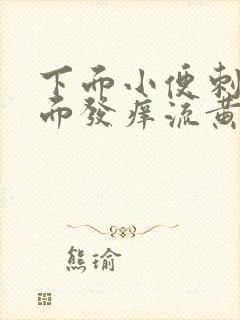 下而小便刺
而發痒流黃
熊瑜